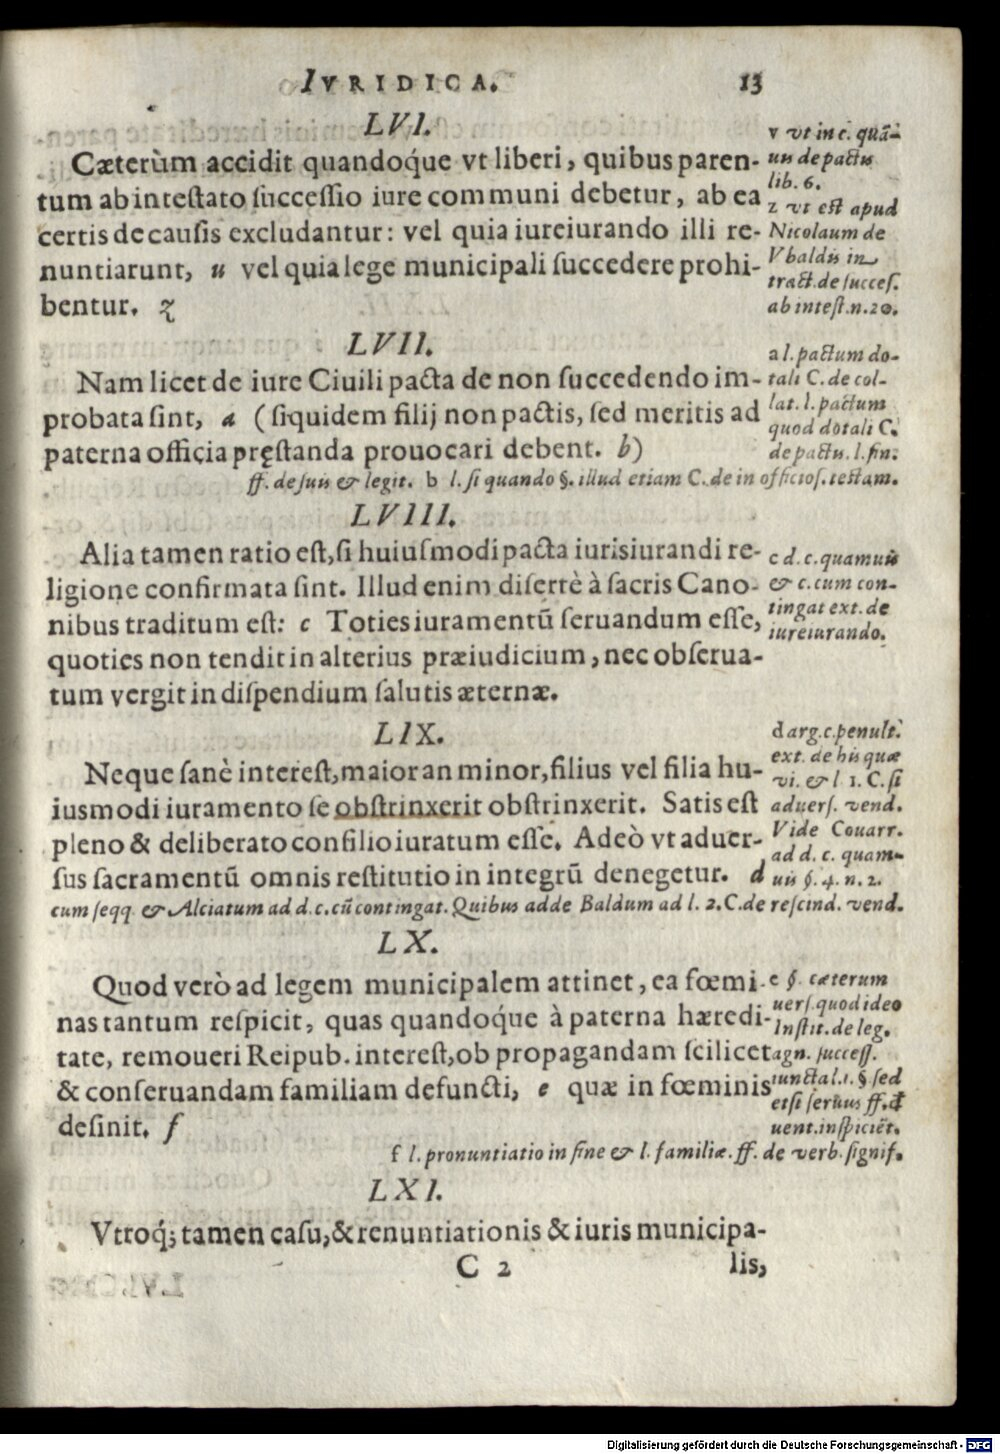 IVRIDICA. 13
LVI.
Cæterùm accidit quandoq́ue vt liberi, quibus paren-
tum ab intestato successio iure communi debetur, ab ea
certis de causis excludantur: vel quia iureiurando illi re-
nuntiarunt, u vel quia lege municipali succedere prohi-
bentur. z
v vt in c. quã-
uis de pactis
lib. 6.
z vt est apud
Nicolaum de
Vbaldis in
tract. de succes.
ab intest. n. 20.
LVII.
Nam licet de iure Ciuili pacta de non succedendo im-
probata sint, a (siquidem filij non pactis, sed meritis ad
paterna officia pręstanda prouocari debent. b)
a l. pactum do-
tali C. de col-
lat. l. pactum
quod dotali C.
de pactis. l. fin.
ff. de suis & legit. b l. si quando §. illud etiam C. de in officios. testam.
LVIII.
Alia tamen ratio est, si huiusmodi pacta iurisiurandi re-
ligione confirmata sint. Illud enim disertè à sacris Cano-
nibus traditum est: c Toties iuramentũ seruandum esse,
quoties non tendit in alterius præiudicium, nec obserua-
tum vergit in dispendium salutis æternæ.
c d. c. quamuis
& c. cum con-
tingat ext. de
iureiurando.
LIX.
Neque sanè interest, maior an minor, filius vel filia hu-
iusmodi iuramento se obstrinxerit obstrinxerit. Satis est
pleno & deliberato consilio iuratum esse. Adeò vt aduer-
sus sacramentũ omnis restitutio in integrũ denegetur. d
d arg. c. penult.
ext. de his quæ
vi. & l. 1. C. si
aduers. vend.
Vide Couarr.
ad d. c. quam-
uis §. 4. n. 2.
cum seqq. & Alciatum ad d. c. cũ contingat. Quibus adde Baldum ad l. 2. C. de rescind. vend.
LX.
Quod verò ad legem municipalem attinet, ea fœmi-
nas tantum respicit, quas quandoq́ue à paterna hæredi-
tate, remoueri Reipub. interest, ob propagandam scilicet
& conseruandam familiam defuncti, e quæ in fœminis
desinit. f
e §. cæterum
uers. quod ideo
Instit. de leg.
agn. success.
iuncta l. 1. § sed
etsi seruus ff. d
uent. inspiciẽt.
f l. pronuntiatio in fine & l. familiæ. ff. de verb. signif.
LXI.
Vtroq́; tamen casu, & renuntiationis & iuris municipa-
C 2 lis,
Digitalisierung gefördert durch die Deutsche Forschungsgemeinschaft - DFG